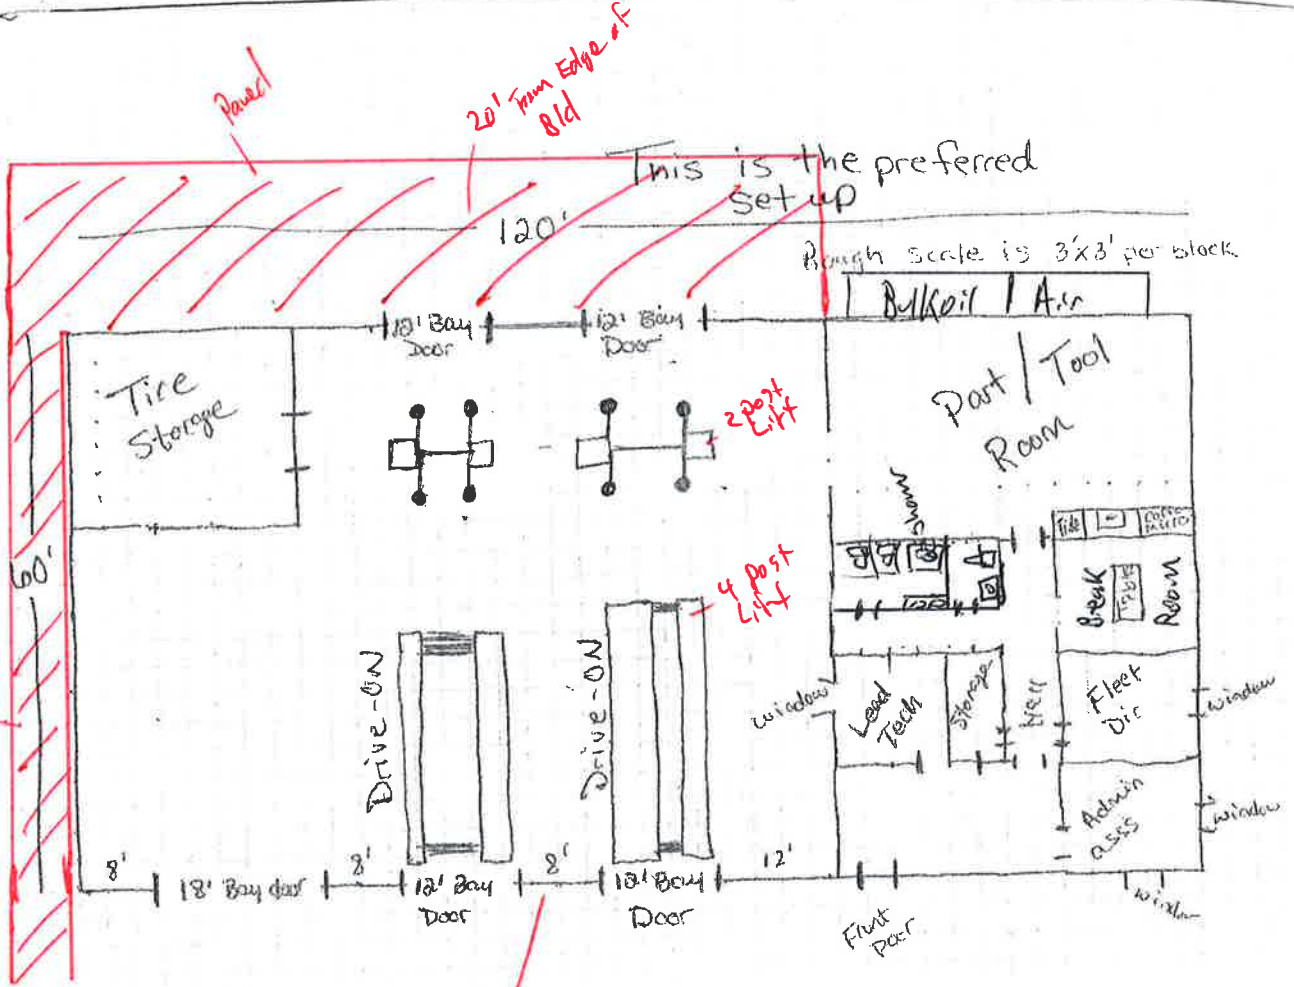 Paved
20' From Edge of
Bld
This is the preferred
set up
120'
Rough scale is 3'x3' per block
Bulkoil
Air
12' Bay
Door
12' Bay
Door
Tire
Storage
2 post
Lift
Part / Tool
Room
60'
Shower
4 post
Lift
Break
Table
Room
Drive-ON
Drive-ON
window
Lead
Tech
Storage
Hall
Fleet
Dir
window
Admin
asss
window
8'
18' Bay door
8'
12' Bay
Door
8'
12' Bay
Door
12'
Front
Door
window